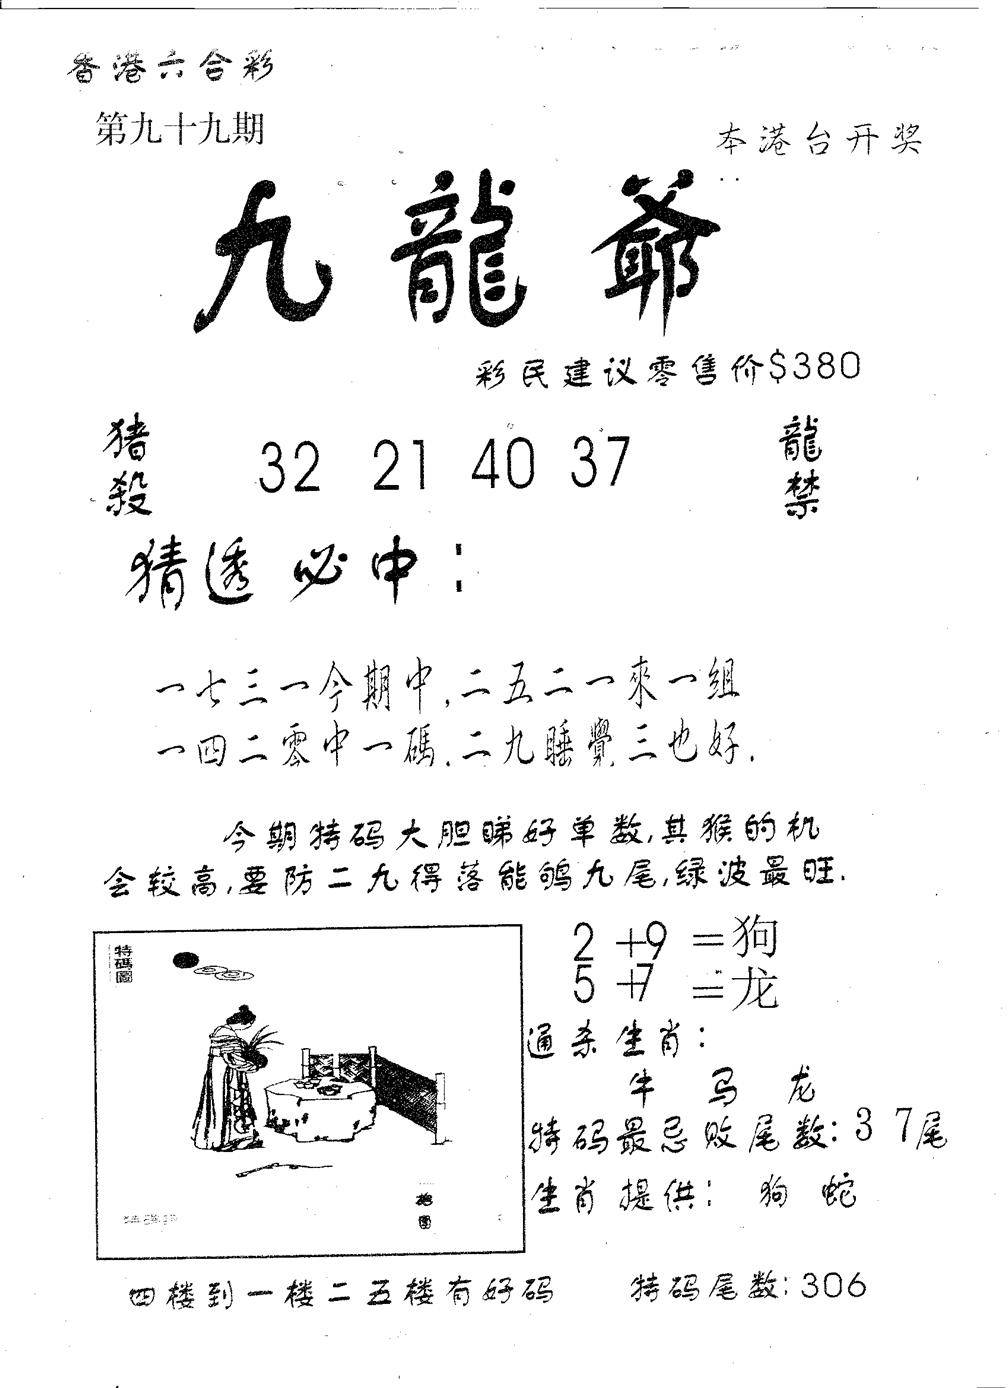 香港六合彩
第九十九期
本港台开奖
九龍爺
彩民建议零售价$380
猪殺
32 21 40 37
龍禁
猜透必中:
一七三一今期中,二五二一來一組
一四二零中一碼.二九睡覺三也好.
今期特码大胆睇好单数,其猴的机
会较高,要防二九得落能鸲九尾,绿波最旺.
特碼圖
2+9=狗
5+7=龙
通杀生肖:
牛 马 龙
特码最忌败尾数:3 7尾
生肖提供: 狗 蛇
四楼到一楼二五楼有好码 特码尾数:306